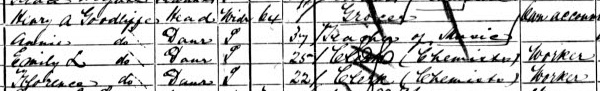 Henry A Goodliffe Head Widr 64 Grocer Own account
Annie do Daur S 37 Teacher of Music
Emily L do Daur S 25 Clerk (Chemists) Worker
Florence do Daur S 22 Clerk (Chemists) Worker